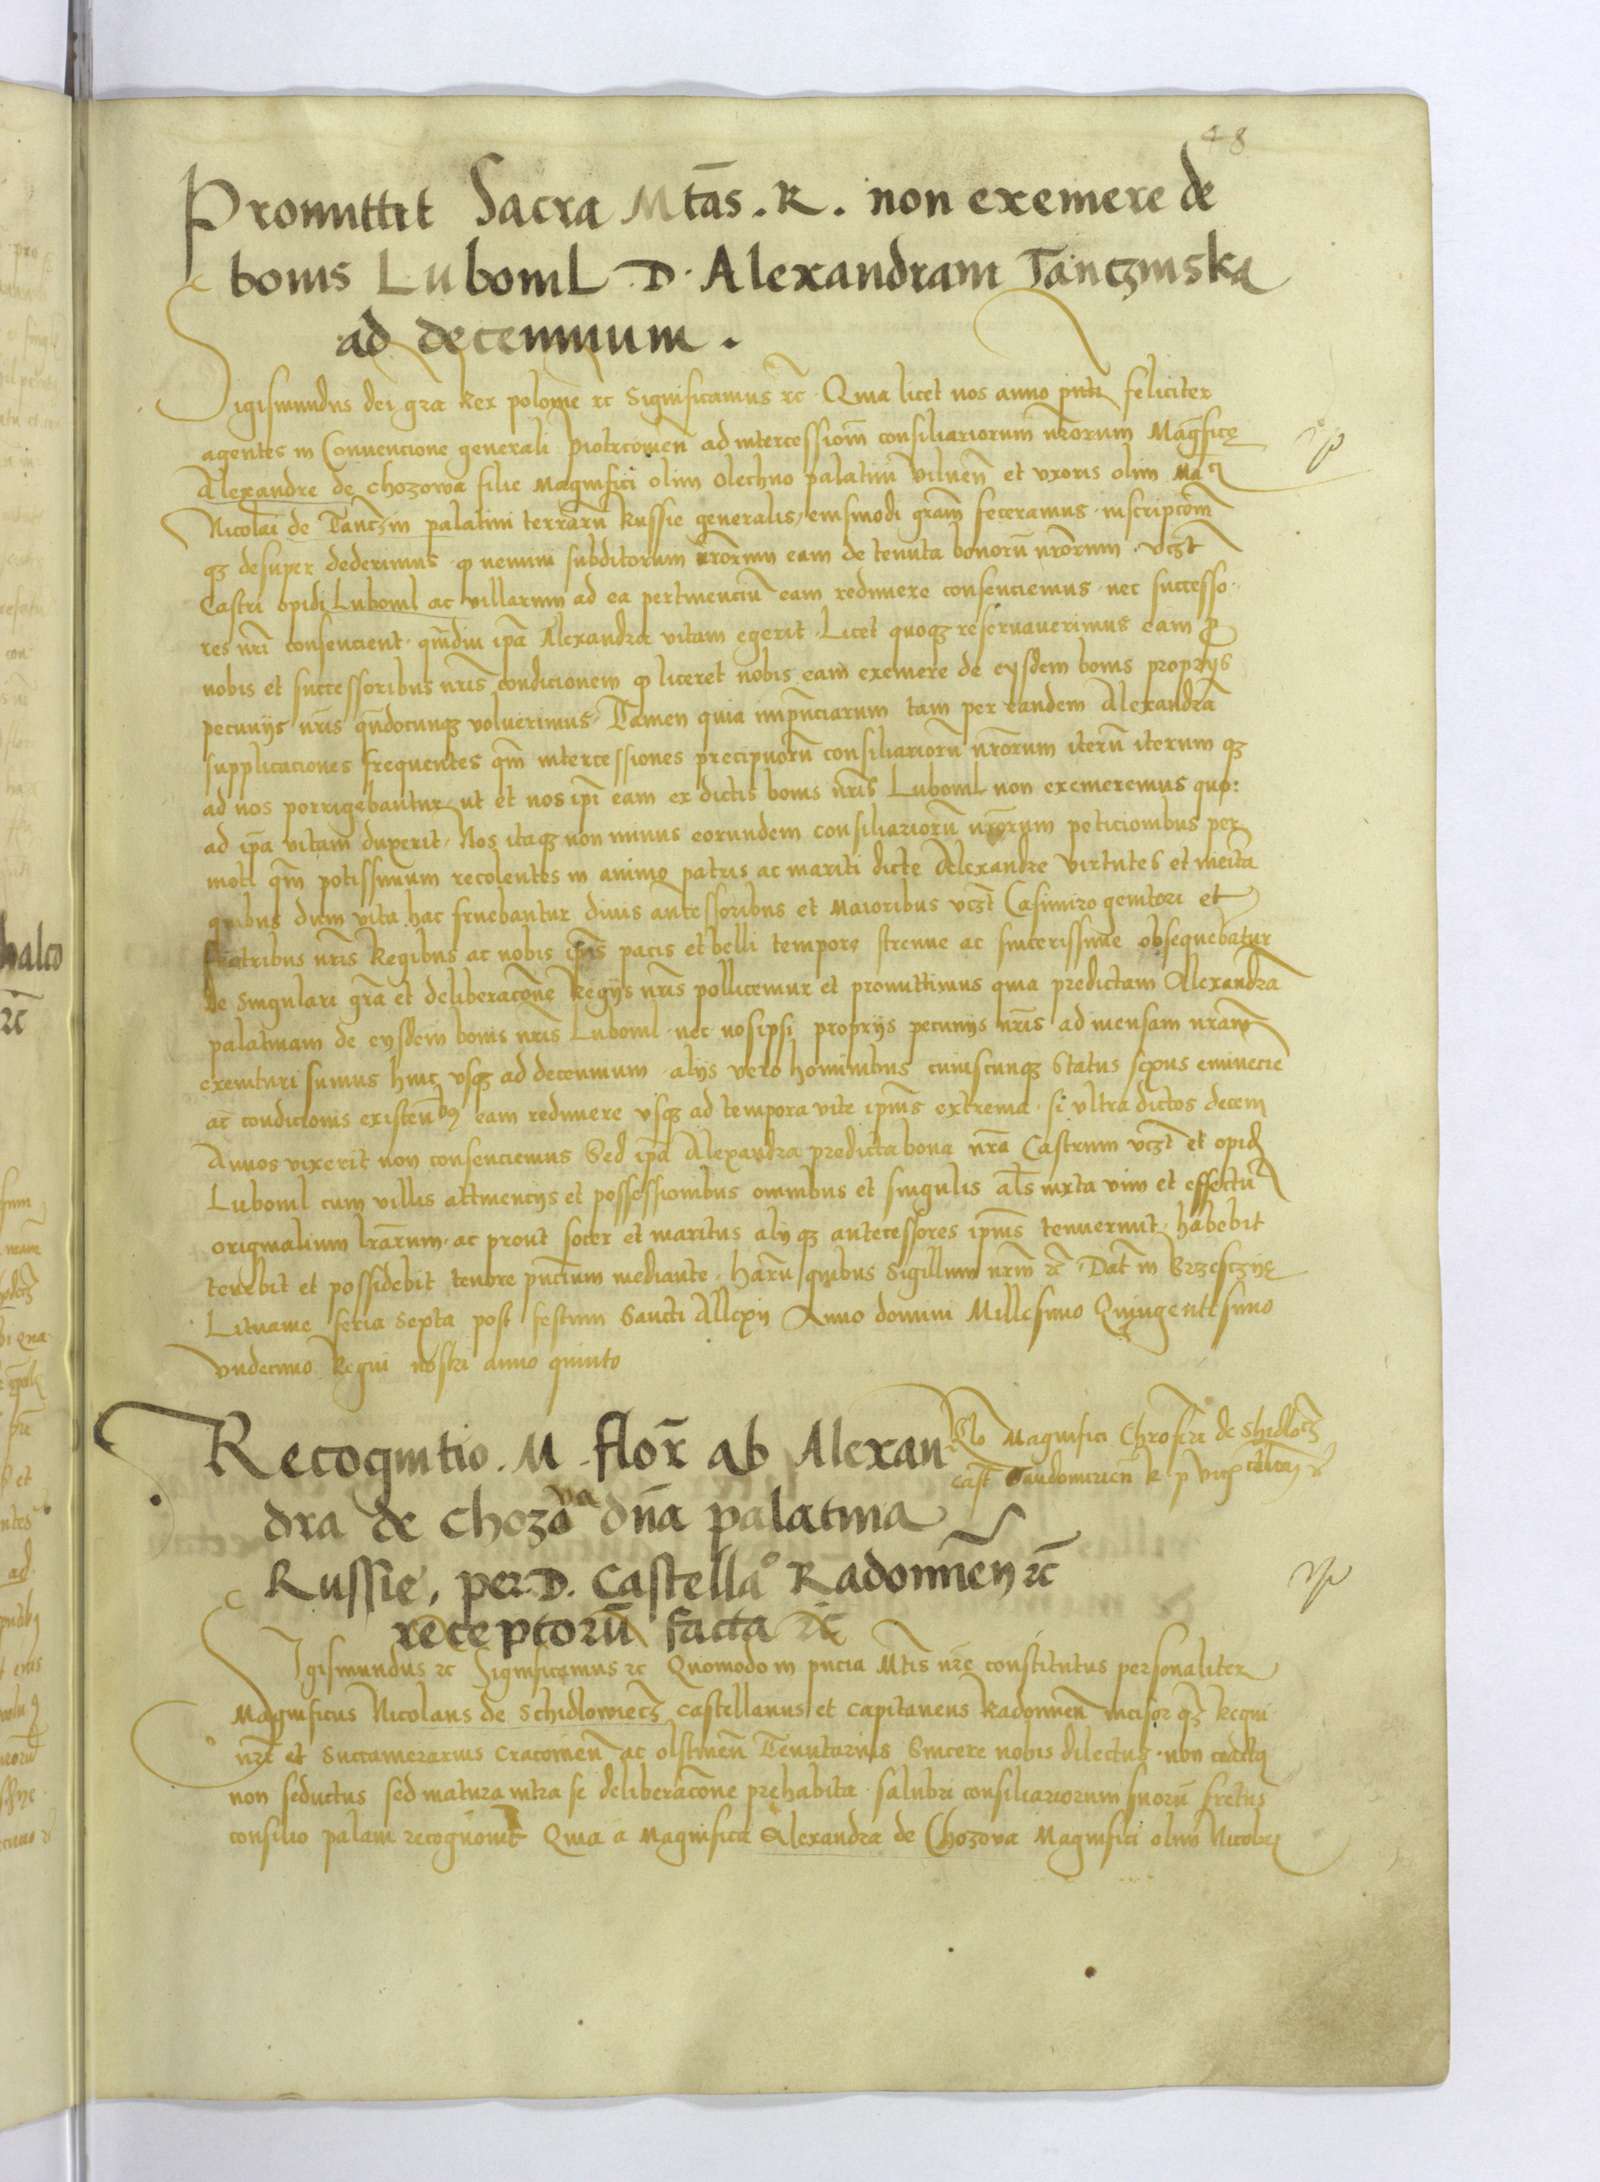 48
Promittit Sacra Mtas. R. non exemere de
bonis Luboml D. Alexandram Tanczinską
ad decennium.
Sigismundus dei gra Rex polonie rc Significamus rc Quia licet nos anno pnti feliciter
agentes in Convencione generali Piotrcovien ad intercessiom consiliariorum nrorum Magfice
Alexandre de Chozowa filie Magnifici olim Olechno palatini Vilnen et vxoris olim Ma
Nicolai de Tanczin palatini terrarū Russie generalis, eiusmodi gram feceramus inscripcom
qz desuper dederimus q nemini subditorum nrorum eam de tenuta bonorū nrorum vczt
Castri opidi Luboml ac villarum ad ea pertinenciū eam redimere consenciemus nec successo
res nri consencient qmdiu ipa Alexandra vitam egerit. Licet quoqz reservaverimus eam p
nobis et successoribus nris condicionem q liceret nobis eam exemere de eysdem bonis proprijs
pecunijs nris qndocunqz voluerimus, Tamen quia tam per eandem Alexandrā
supplicaciones frequentes qm intercessiones precipuorū consiliariorū nrorum iterū iterum qz
ad nos porrigebantur, ut et nos ipi eam ex dictis bonis nris Luboml non exemeremus quo:
ad ipa vitam duxerit, Nos itaqz non minus eorundem consiliariorū nrorum peticionibus per
moti qm potissimum recolentes in animo patris ac mariti dicte Alexandre virtutes et merita
quibus dum vita hac fruebantur divis antessoribus et Maioribus vczt Casimiro genitori et
fratribus nris Regibus ac nobis ipis pacis et belli tempore strenue ac sincerissime obsequebatur
de singulari gra et deliberacone Regijs nris pollicemur et promittimus quia predictam Alexandrā
palatinam de eysdem bonis nris Luboml nec nosipsi proprijs pecunijs nris ad mensam nram
exempturi sumus hinc vsqz ad decennium alijs vero hominibus cuiuscunqz status sexus eminecie
ac condicionis existenbus eam redimere vsqz ad tempora vite ipius extrema si vltra dictos decem
Annos vixerit non consenciemus Sed ipa Alexandra predicta bona nra Castrum vczt et opid
Luboml cum villis attinencijs et possessionibus omnibus et singulis als iuxta vim et effectū
originalium lrarum ac prout socer et maritus alij qz antecessores ipius tenuerunt, habebit
tenebit et possidebit tenore pncium mediante, harū quibus Sigillum nrm rc Dat in Brzesczye
Lituanie feria sexta post festum Sancti Allexij Anno domini Millesimo Quingentesimo
vndecimo Regni nostri anno quinto
Recognitio. M. flor ab Alexan
dra de Chozova dna palatina
Russie, per D. Castella Radomien rc
receptorū facta rc
Rlo Magnifici Chrofori de Shidlocz
cast Sandomirien R p vicecan rc
Sigismundus rc Significamus rc Quomodo in pncia Mtis nre constitutus personaliter
Magnificus Nicolaus de Schidlowiecz Castellanus et Capitaneus Radomien incisor qz Regni
nri et Succamerarius Cracovien ac olstinen Tenutarius Sincere nobis dilectus non coactus
non seductus sed matura intra se deliberacone prehabita salubri consiliariorum suorū fretus
consilio palam recognovit Quia a Magnifica Alexandra de Chozova Magnifici olim Nicolai